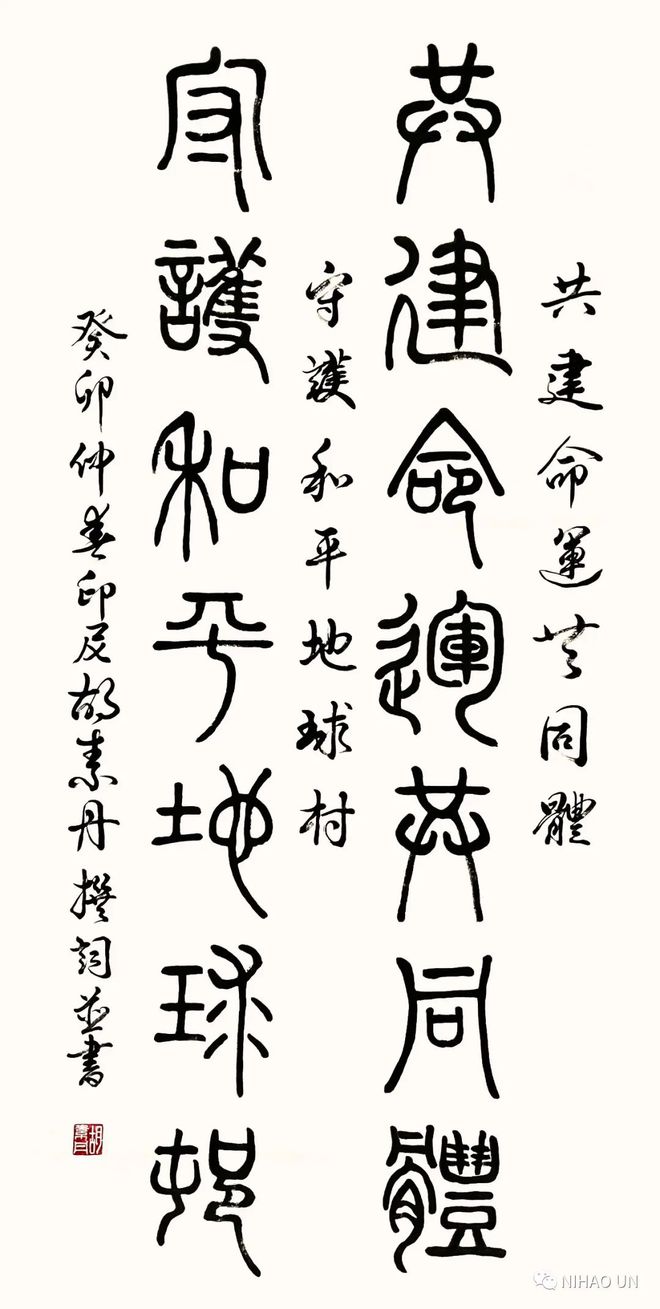 共建命運共同體
共建命運共同體
守護和平地球村
守護和平地球邨
癸卯仲春印尼胡素丹撰詞並書
胡素丹
NIHAO UN